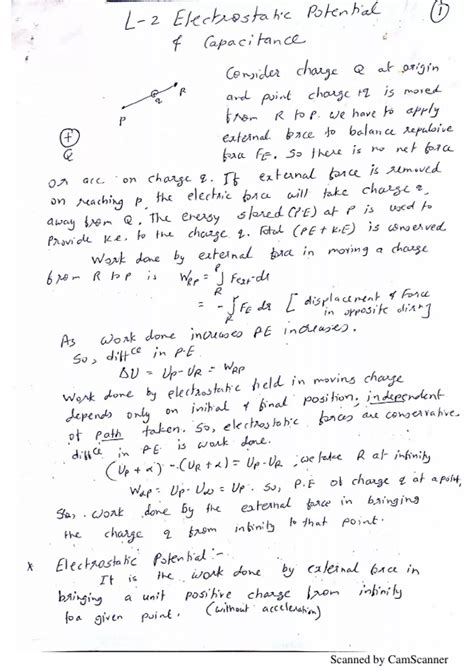 L-2 Electrostatic Potential
& Capacitance
1
R
q
P
+
Q
Consider charge Q at origin
and point charge +q is moved
from R to P. We have to apply
external force to balance repulsive
force FE. So there is no net force
or acc. on charge q. If external force is removed
on reaching P, the electric force will take charge q
away from Q. The energy stored (PE) at P is used to
Provide K.e. to the charge q. Total (PE + K.E) is conserved
Work done by external force in moving a charge
from R to P is WRP = ∫ᴿᴾ Fext·ds
= -∫ᴿᴾ FE ds [displacement & Force in opposite dirⁿ]
As work done increases PE increases.
So, diffᶜᵉ in P.E
ΔU = UP - UR = WRP
Work done by electrostatic field in moving charge
depends only on initial & final position, independent
of path taken. So, electrostatic forces are conservative.
diffᶜᵉ in P.E. is work done.
(UP + α) - (UR + α) = UP - UR, we take R at infinity
W∞P = UP - U∞ = UP. So, P.E of charge q at a point,
is work done by the external force in bringing
the charge q from infinity to that point.
* Electrostatic Potential :-
It is the work done by external force in
bringing a unit positive charge from infinity
to a given point. (without acceleration)
Scanned by CamScanner